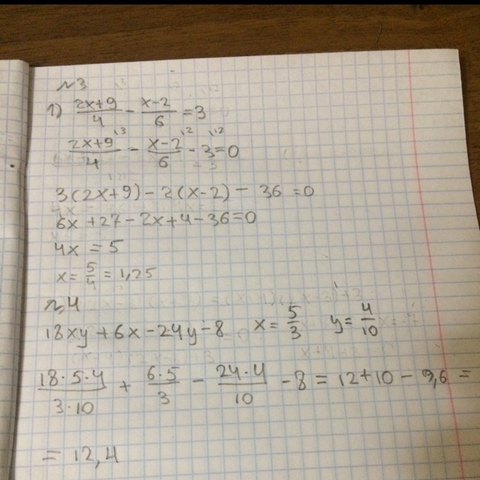 №3
1) (2x+9)/4 - (x-2)/6 = 3
(2x+9)/4 ^3 - (x-2)/6 ^2 - 3 ^12 = 0
3(2x+9) - 2(x-2) - 36 = 0
6x + 27 - 2x + 4 - 36 = 0
4x = 5
x = 5/4 = 1,25
№4
18xy + 6x - 24y - 8 x = 5/3 y = 4/10
(18·5·4)/(3·10) + (6·5)/3 - (24·4)/10 - 8 = 12 + 10 - 9,6 =
= 12,4